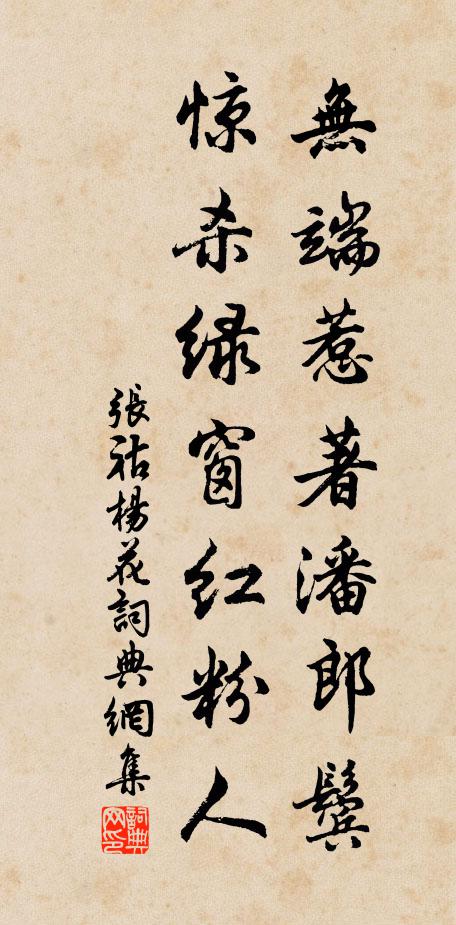 無端惹著潘郎鬢
惊杀绿窗红粉人
張祜楊花詞典網集
詞典网印